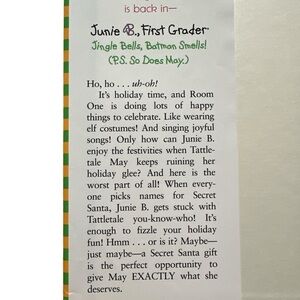 is back in—
Junie B., First Grader
Jingle Bells, Batman Smells!
(P.S. So Does May.)
Ho, ho . . . uh-oh!
It's holiday time, and Room
One is doing lots of happy
things to celebrate. Like wearing
elf costumes! And singing joyful
songs! Only how can Junie B.
enjoy the festivities when Tattle-
tale May keeps ruining her
holiday glee? And here is the
worst part of all! When every-
one picks names for Secret
Santa, Junie B. gets stuck with
Tattletale you-know-who! It's
enough to fizzle your holiday
fun! Hmm . . . or is it? Maybe—
just maybe—a Secret Santa gift
is the perfect opportunity to
give May EXACTLY what she
deserves.